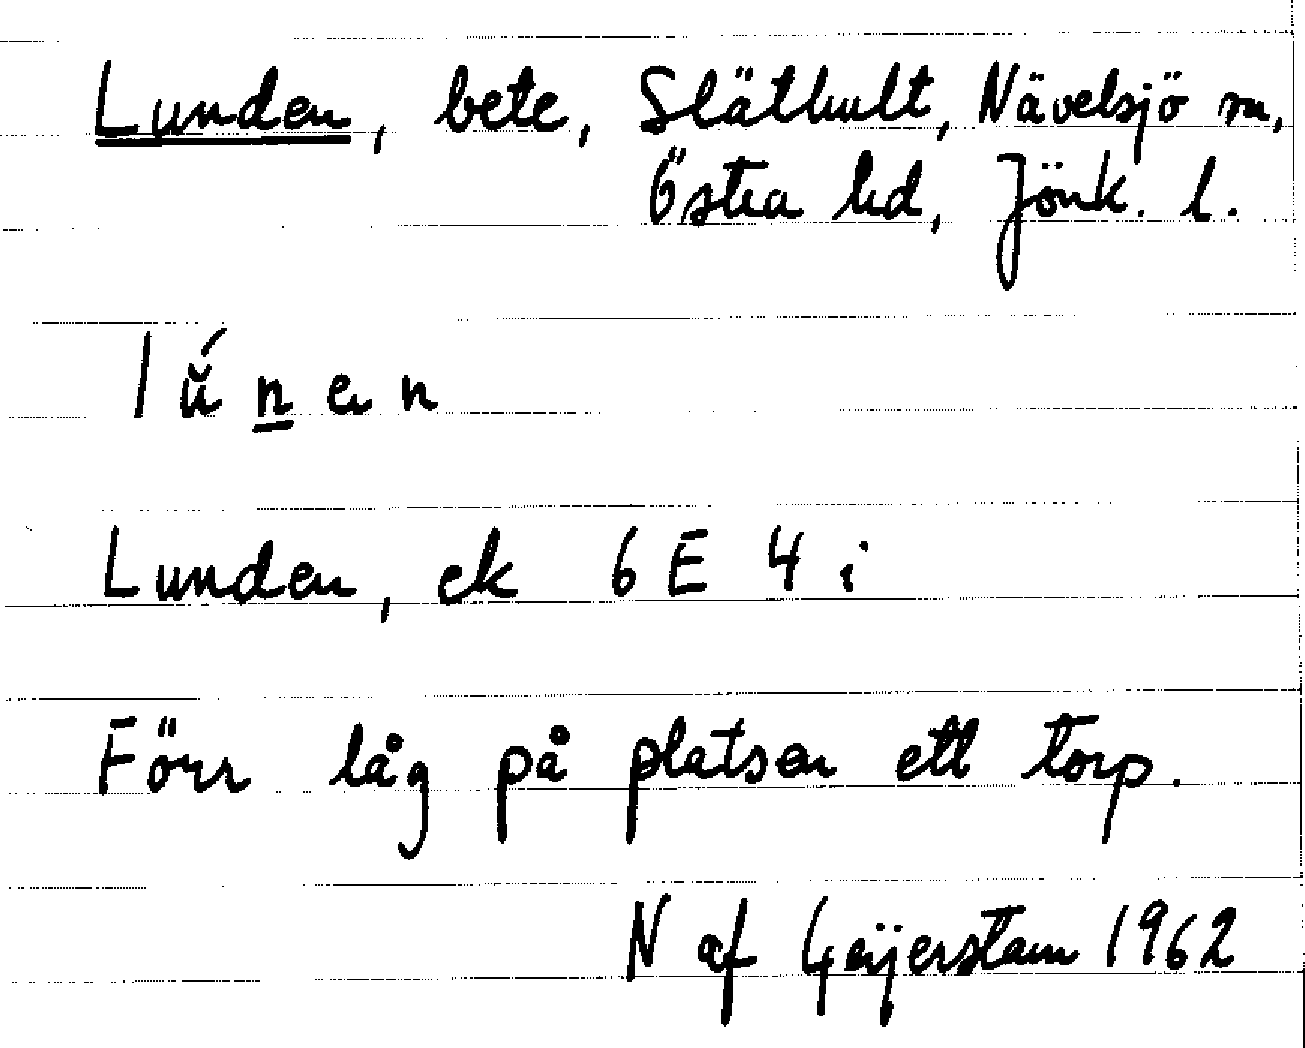 Lunden, bete, Släthult, Nävelsjö sn,
Östra hd, Jönk. l.
l ŭ́ n̲ e n
Lunden, ek 6 E 4 i
Förr låg på platsen ett torp.
N af Geijerstam 1962